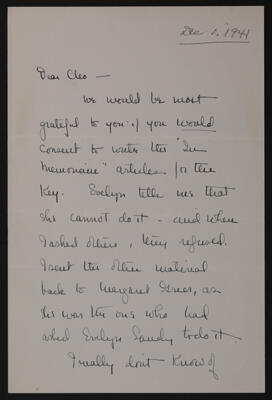 Dec 1. 1941
Dear Cleo —
We would be most
grateful to you if you would
consent to write the "In
Memoriam" articles for the
Key. Evelyn tells me that
she cannot do it - and when
I asked others, they refused.
I sent the other material
back to Margaret Greer, as
she was the one who had
asked Evelyn to do it.
I really don't know of